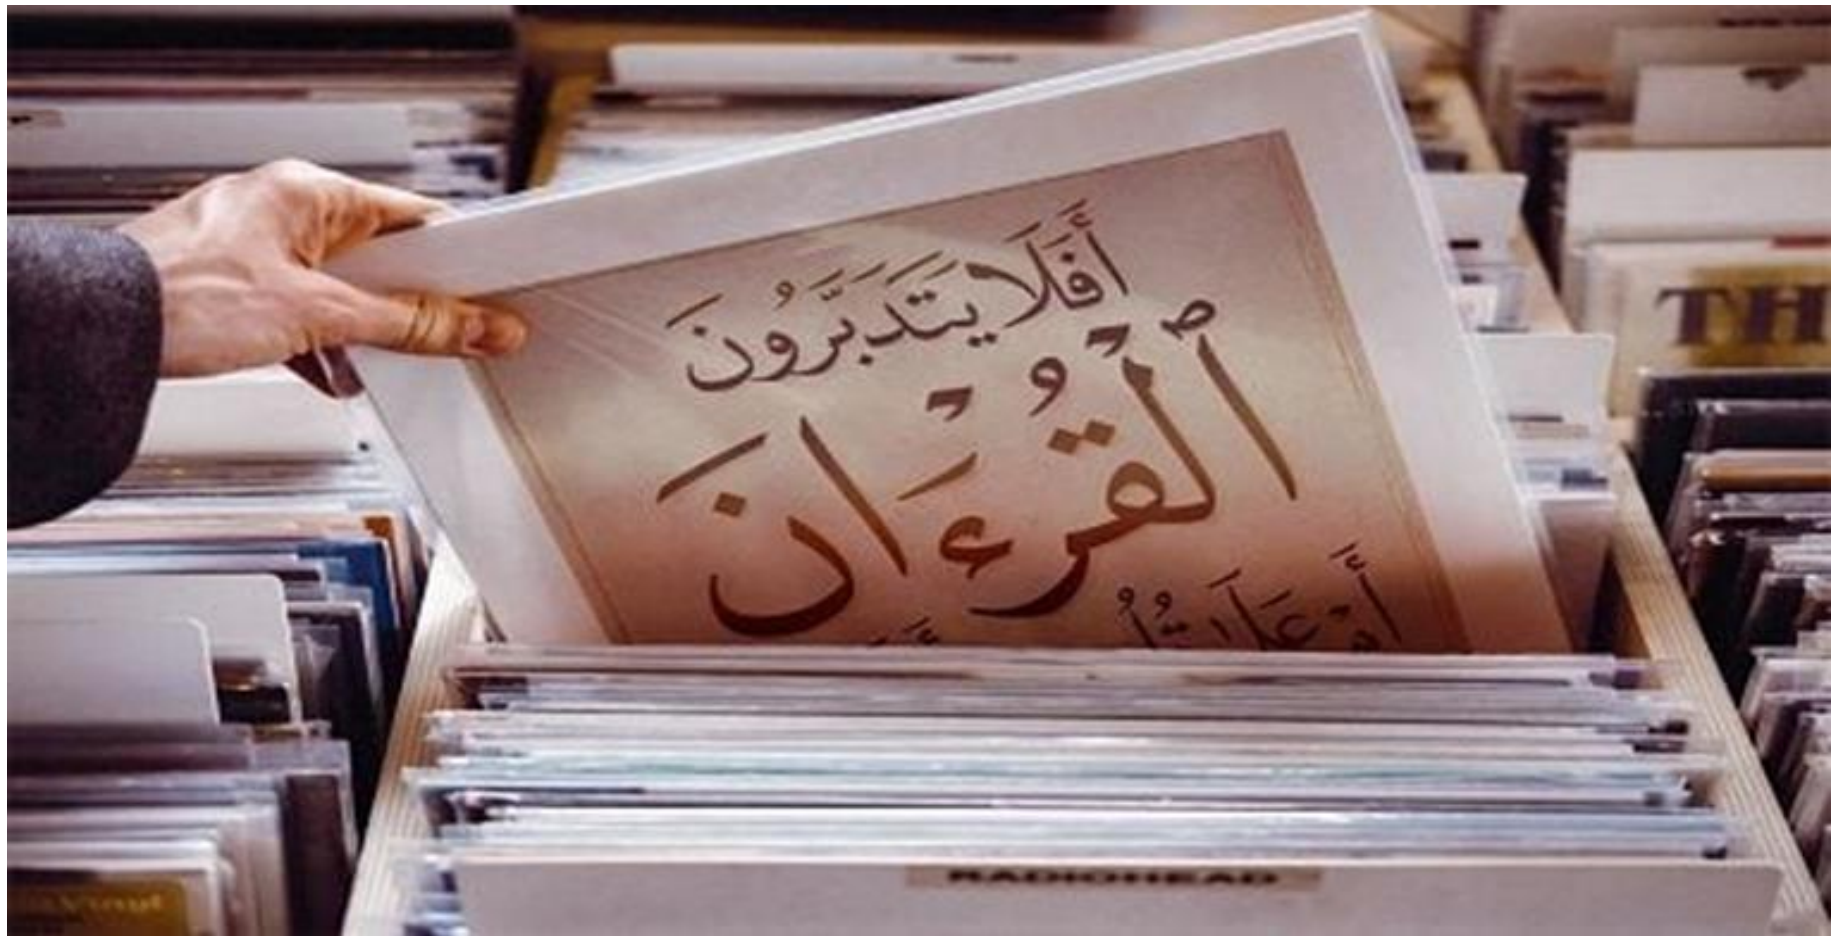 أَفَلَا يَتَدَبَّرُونَ
ٱلْقُرْءَانَ
أَمْ عَلَىٰ قُلُ
TH
RADIOHEAD